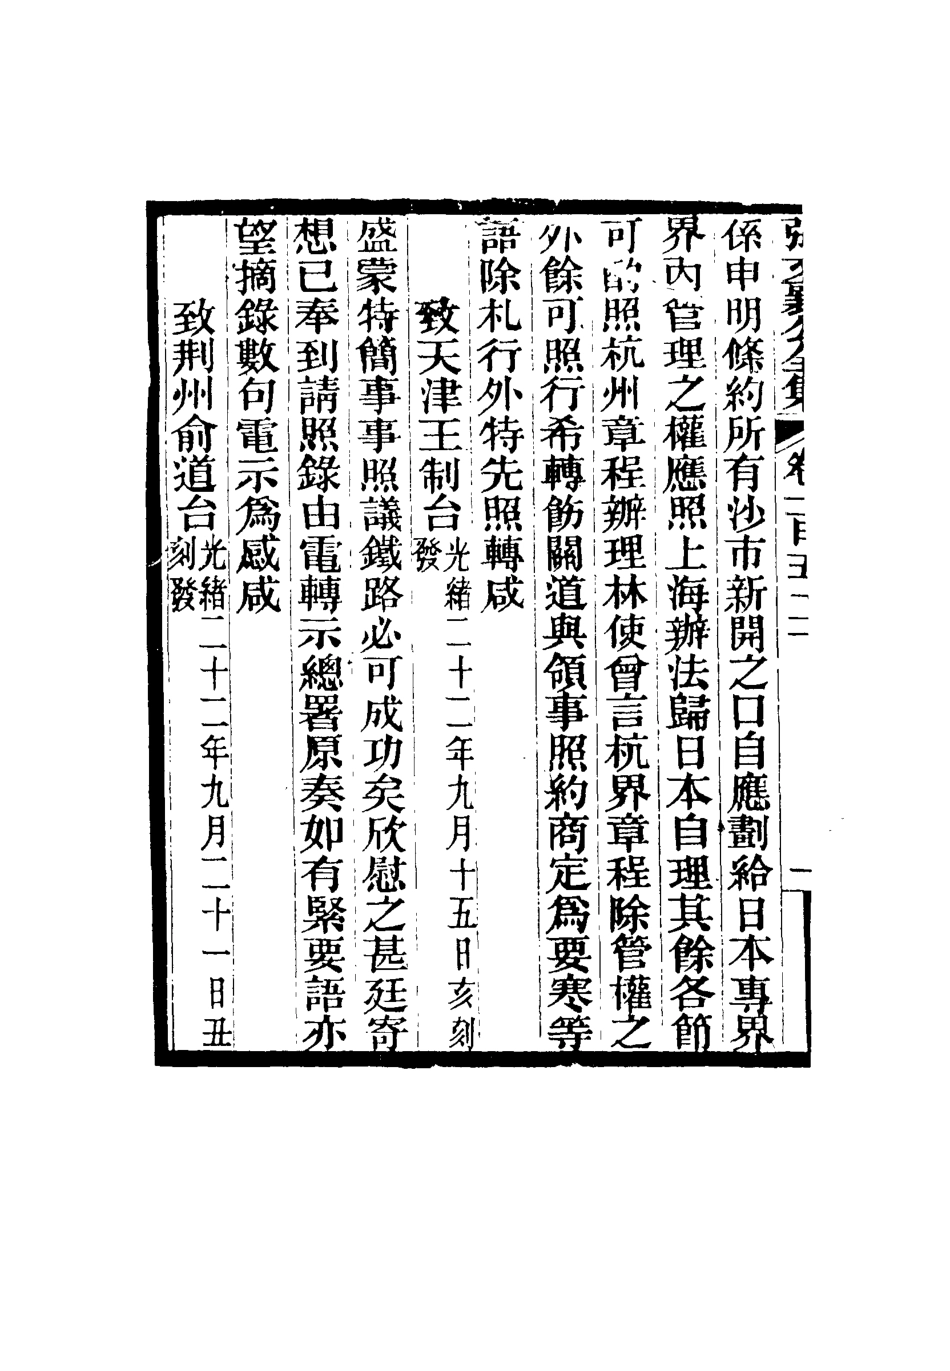 張文襄公全集 卷一百五十二 一
係申明條約所有沙市新開之口自應劃給日本專界
界內管理之權應照上海辦法歸日本自理其餘各節
可酌照杭州章程辦理林使曾言杭界章程除管權之
外餘可照行希轉飭關道與領事照約商定爲要寒等
語除札行外特先照轉咸
致天津王制台光緒二十二年九月十五日亥刻發
盛蒙特簡事事照議鐵路必可成功矣欣慰之甚廷寄
想已奉到請照錄由電轉示總署原奏如有緊要語亦
望摘錄數句電示爲感咸
致荆州俞道台光緒二十二年九月二十一日丑刻發